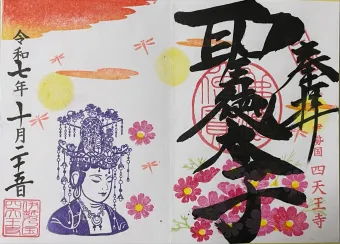 奉拝
聖徳太子
四天王寺
令和七年十月二十五日